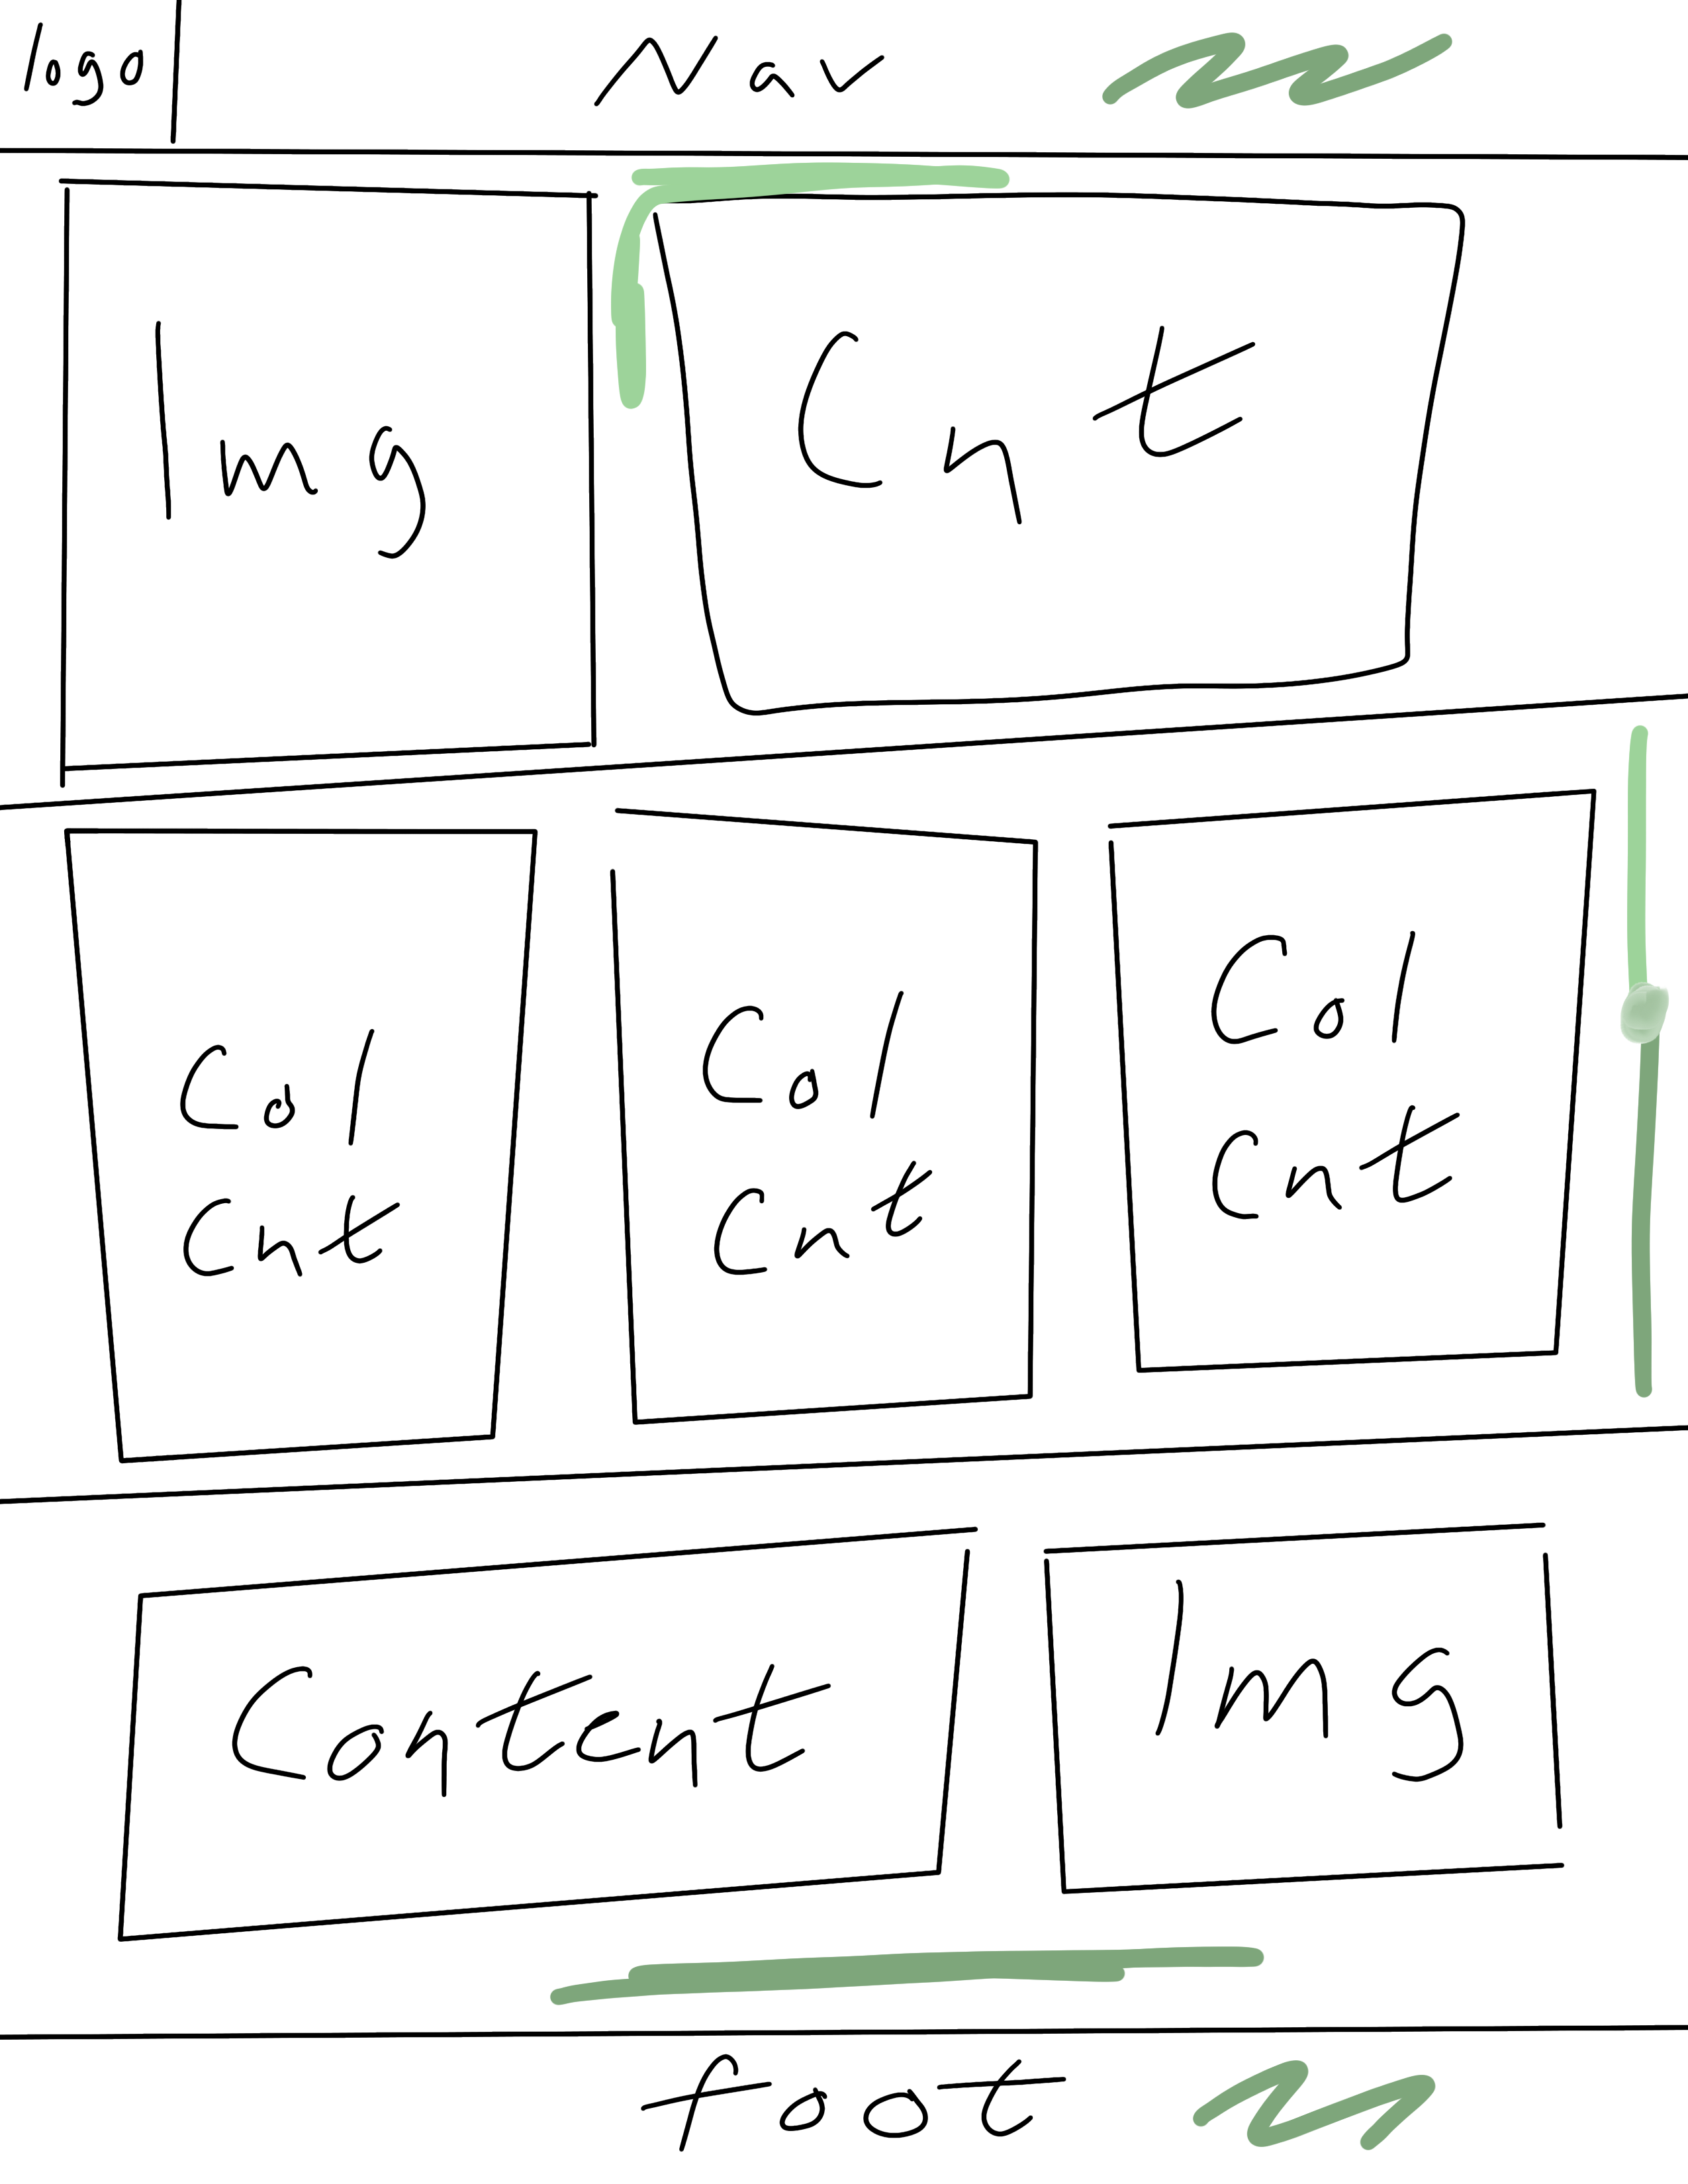 logo Nav
Img Cnt
Col
Cnt
Col
Cnt
Col
Cnt
Content Img
foot